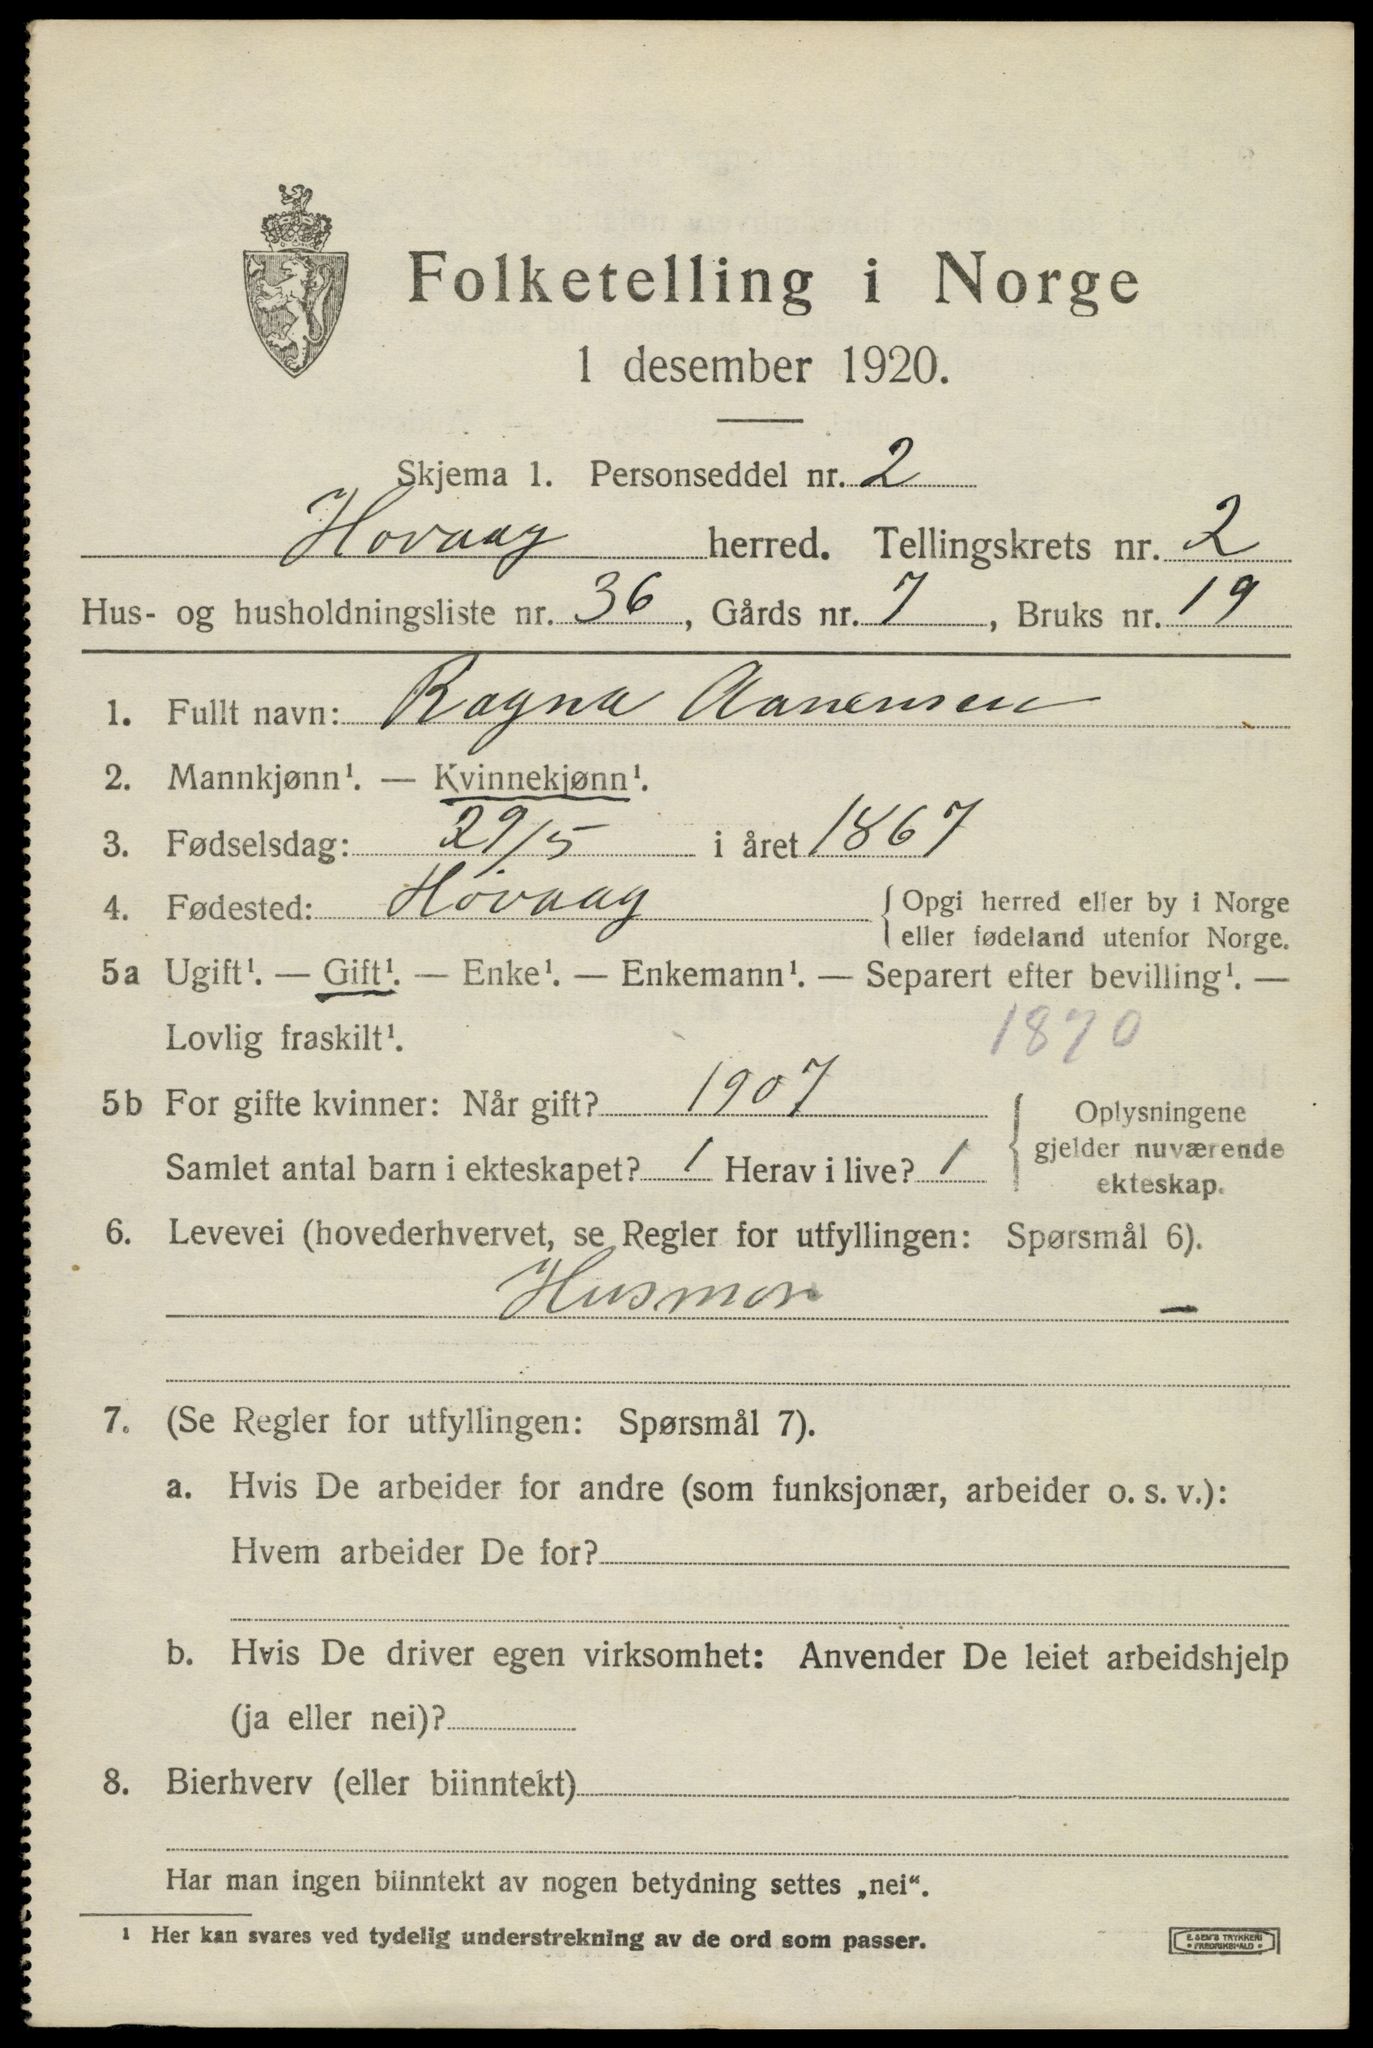 Folketelling i Norge
1 desember 1920.
Skjema 1. Personseddel nr. 2
Hovaag herred. Tellingskrets nr. 2
Hus- og husholdningsliste nr. 36, Gårds nr. 7, Bruks nr. 19
1. Fullt navn: Ragna Aanensen
2. Mannkjønn¹. — Kvinnekjønn¹.
3. Fødselsdag: 29/5 i året 1867
4. Fødested: Høvaag { Opgi herred eller by i Norge
eller fødeland utenfor Norge.
5a Ugift¹. — Gift¹. — Enke¹. — Enkemann¹. — Separert efter bevilling¹. —
Lovlig fraskilt¹. 1870
5b For gifte kvinner: Når gift? 1907
Samlet antal barn i ekteskapet? 1 Herav i live? 1
{ Oplysningene
gjelder nuværende
ekteskap.
6. Levevei (hovederhvervet, se Regler for utfyllingen: Spørsmål 6).
Husmor —
7. (Se Regler for utfyllingen: Spørsmål 7).
a. Hvis De arbeider for andre (som funksjonær, arbeider o. s. v.):
Hvem arbeider De for?
b. Hvis De driver egen virksomhet: Anvender De leiet arbeidshjelp
(ja eller nei)?
8. Bierhverv (eller biinntekt)
Har man ingen biinntekt av nogen betydning settes „nei“.
¹ Her kan svares ved tydelig understrekning av de ord som passer.
E. SEM'S TRYKKERI
• FREDRIKSHALD •